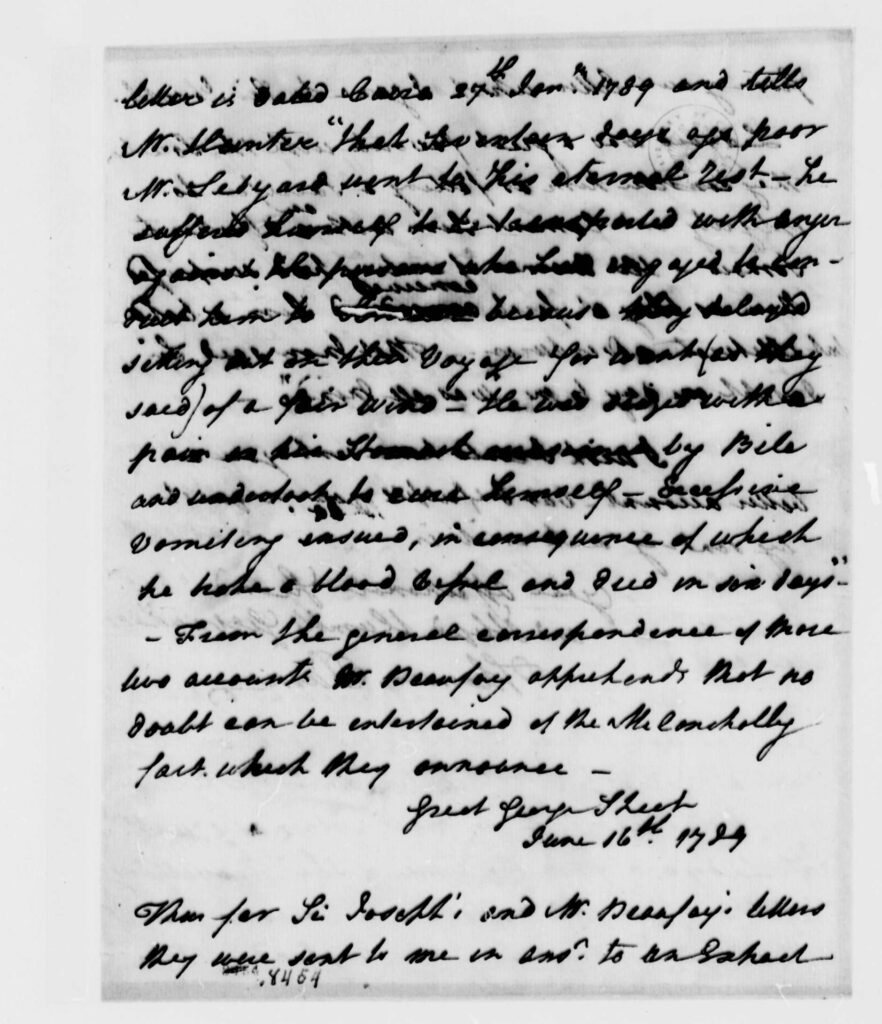 letter is dated Cairo 27th Jany. 1789 and tells
Mr. Hunter "that seventeen days ago poor
Mr. Ledyard went to his eternal rest. – he
suffered himself to be transported with anger
against the persons who had engaged to con-
duct him to Sennar because they delayed
setting out on their Voyage for want (as they
said) of a fair wind – He was seized with a
pain in his Stomach occasioned by Bile
and undertook to cure himself – Excessive
Vomiting ensued, in consequence of which
he broke a blood Vessel and died in six days"–
– From the general correspondence of those
two accounts Mr. Beaufoy apprehends that no
doubt can be entertained of the Melancholly
fact which they announce –
Great George Street
June 16th. 1789
Thus far Sir Joseph's and Mr. Beaufoy's letters
they were sent to me in ansr. to an Extract
8454